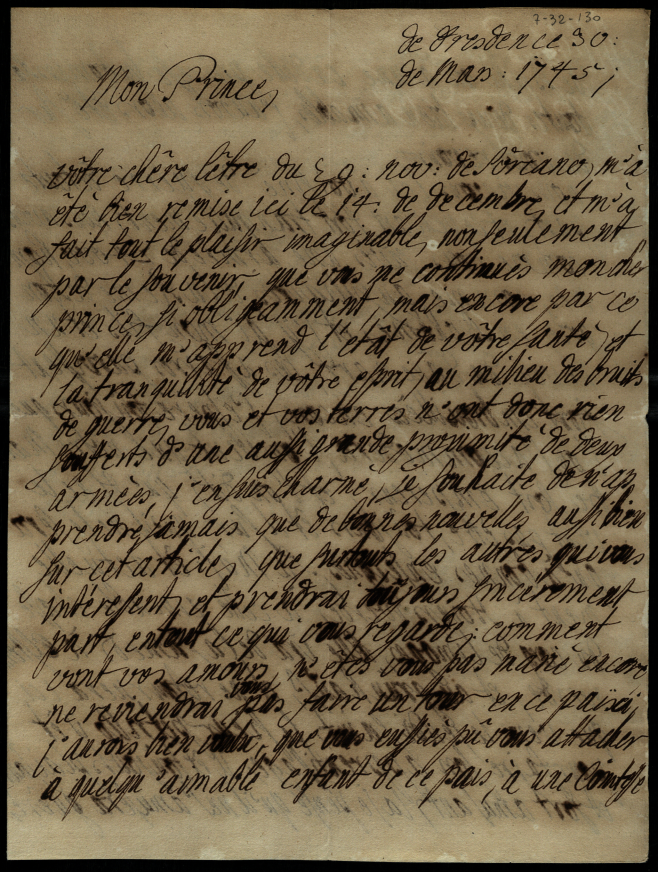 7-32-130
de Dresden ce 30:
de Mars: 1745;
Mon Prince,
vôtre chêre lêtre du 29: nov: de Soriano, m'a
êtê bien remise ici le 14: de decembre, et m'a
fait tout le plaisir imaginable, non seulement
par le souvenir, que vous me continuês mon cher
prince, si obligeamment, mais encore par ce
qu'elle m'apprend l'êtât de vôtre santê, et
la tranquilitê de vôtre esprit, au milieu des bruits
de guerre, vous et vos terres n'ont donc rien
soufferts d'une aussi grande proximitê de deux
armêes, j'en suis charmê, je souhaite de n'ap
prendre jamais que de bonnes nouvelles, aussi bien
sur cet article, que sur touts les autres qui vous
intêressent, et prendrai toujours sincêrement
part, en tout ce qui vous regarde; comment
vont vos amours, n'êtes vous pas mariê encore
ne reviendrai vous pas, faire un tour en ce païs ci,
j'aurois bien voulu, que vous eussiês pû vous attacher
à quelqu'aimable enfant de ce païs, à une Comtesse